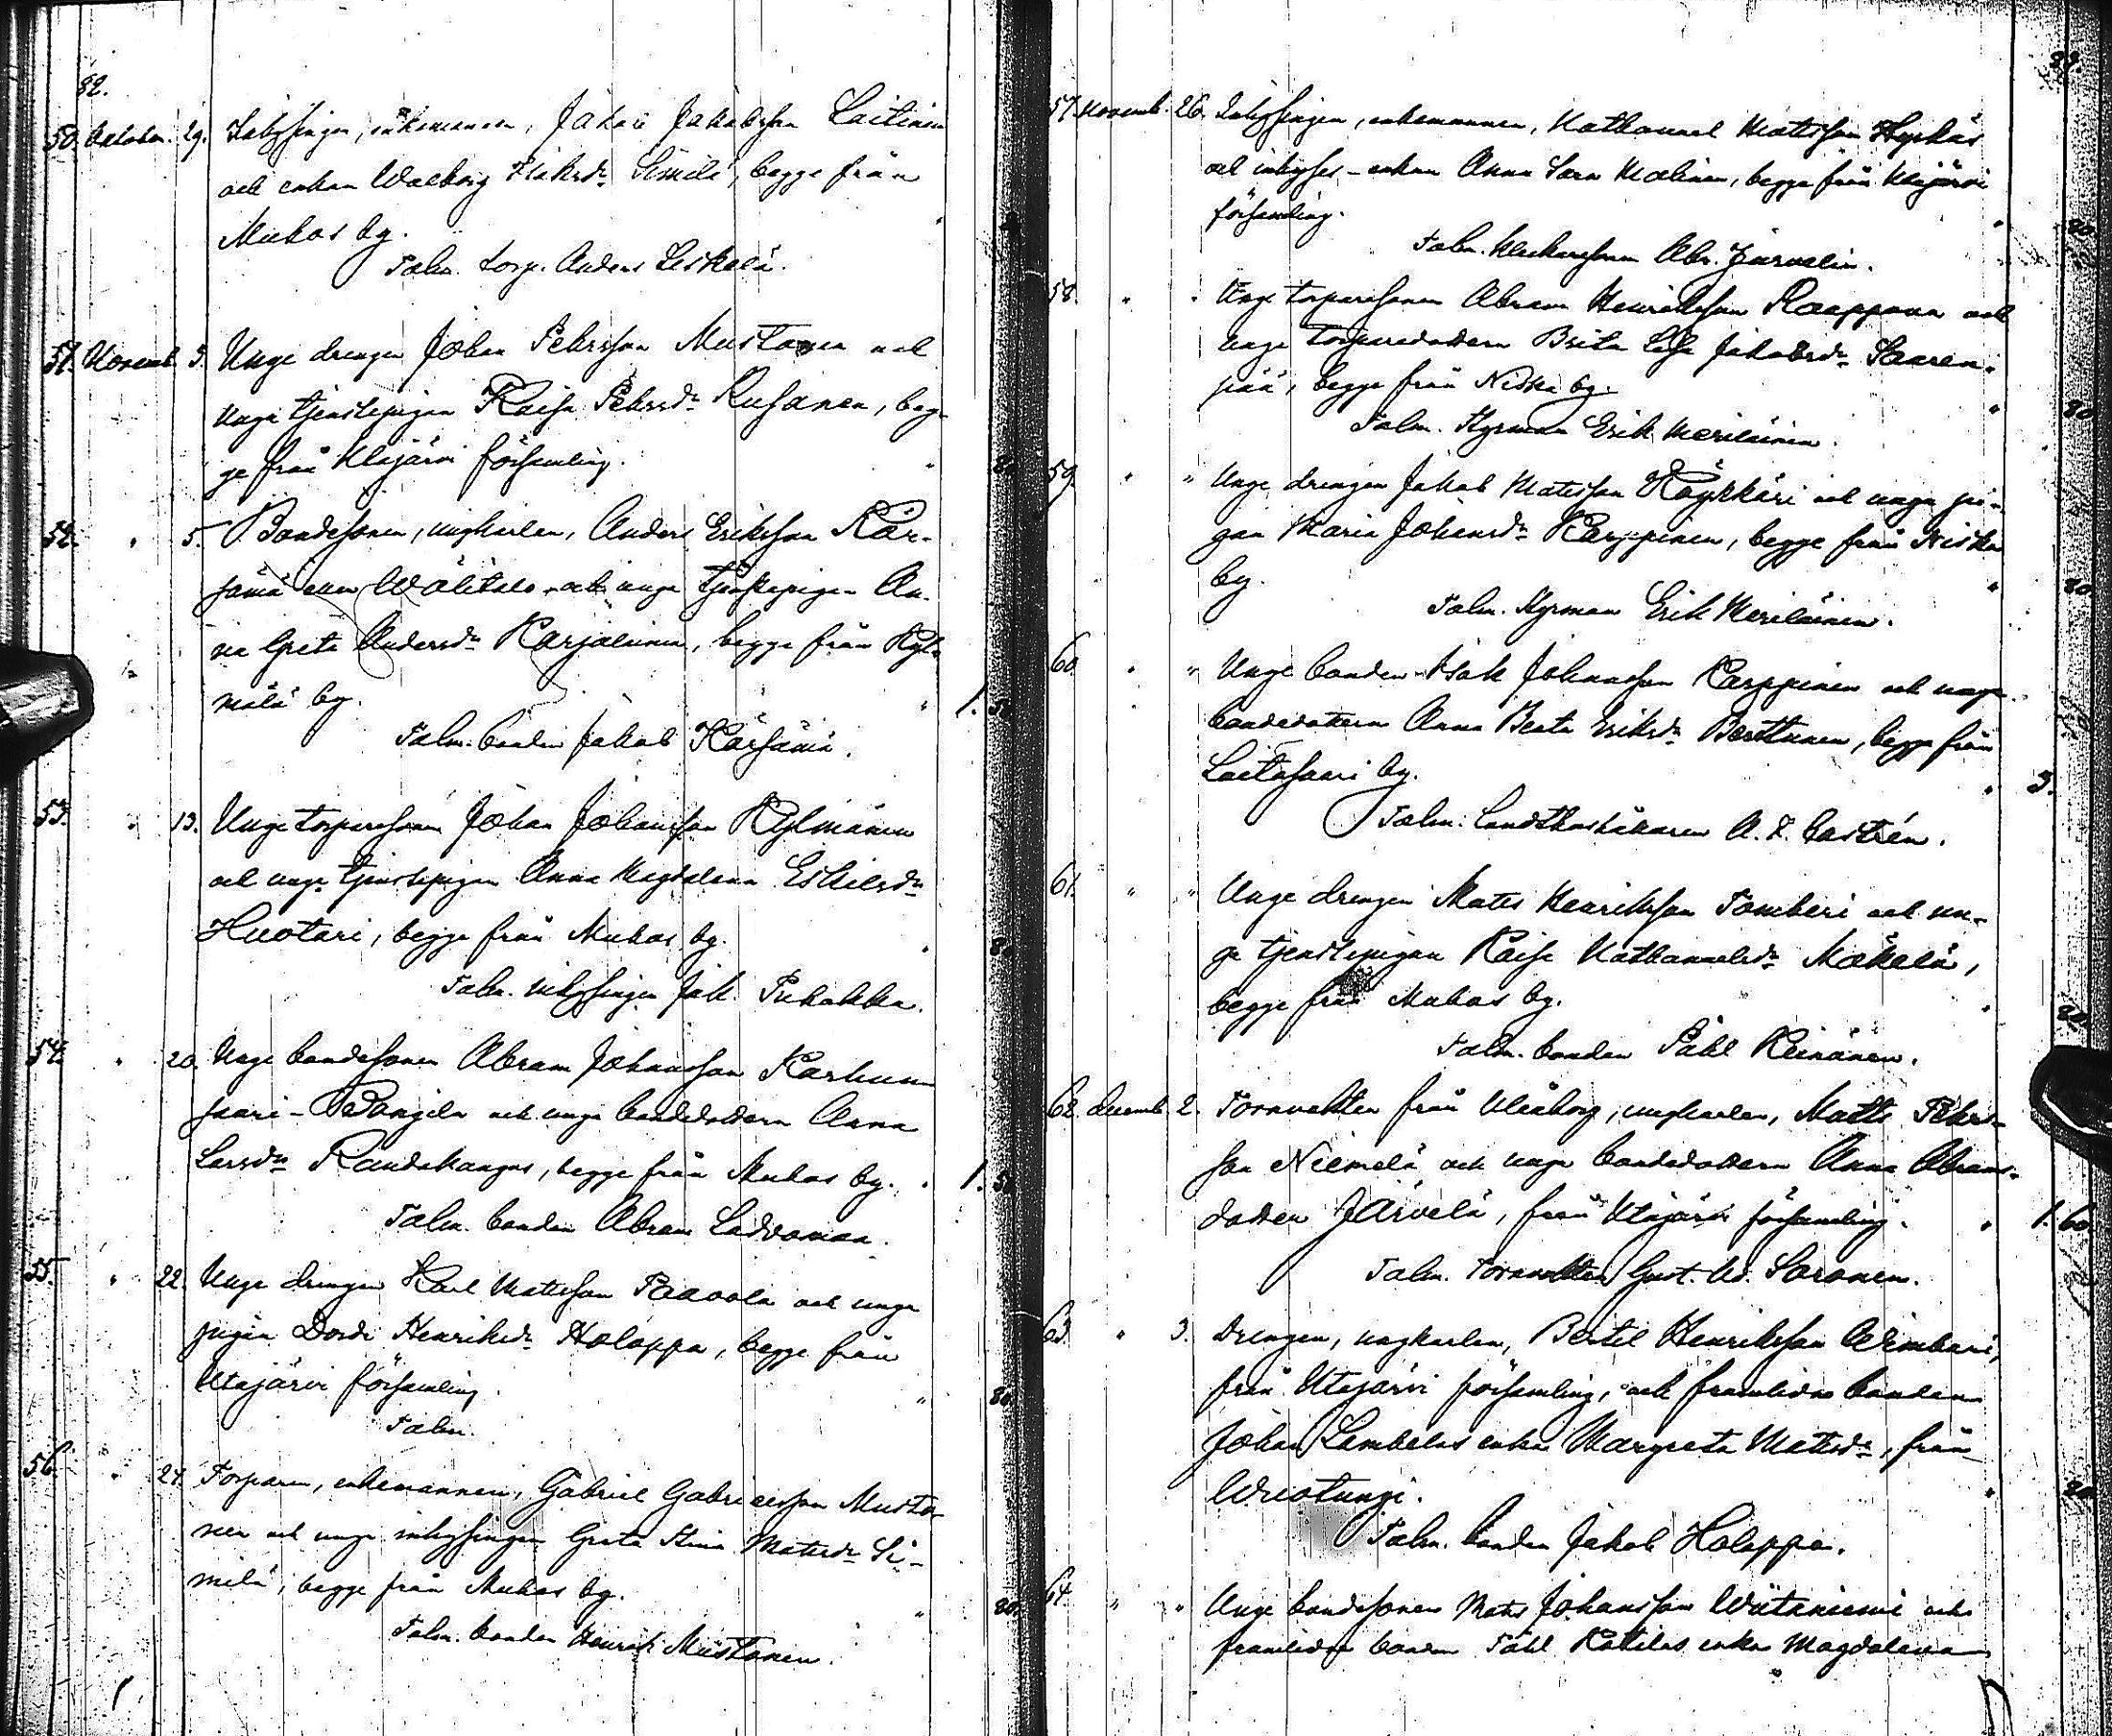 82.
50. October. 29. Inhysingen, enkemannen, Jakob Jakobsson Laitinen
och enkan Walborg Isaksdr Similä, begge från
Muhos by.
Talm. torp. Anders Leskelä.
51. Novemb. 3. Unge drengen Johan Pehrsson Mustonen och
unga tjenstepigan Kaisa Pehrsdr Rusanen, beg-
ge från Utajärvi församling. " 80.
52. " 5. Bondesonen, ungkarlen, Anders Eriksson Kär-
sämä eller Wälitalo och unga tjenstepigan An-
na Greta Andersdr Karjalainen, begge från Kyl-
mälä by. " 1. 50
Talm. bonden Jakob Kärsämä.
53. " 13. Unge torparesonen Johan Johansson Kylmänen
och unga tjenstepigan Anna Magdalena Eskilsdr
Huotari, begge från Muhos by. " 80
Talm. inhysingen Jak. Pukakka.
54. " 20. Unge bondesonen Abram Johansson Karhun
saari-Pedangeln och unga bondedottern Anna
Larsdr Raudakangas, begge från Muhos by. " 1. 50
Talm. bonden Abram Ladvamaa.
55. " 22. Unge drengen Karl Matsson Paavola och unga
pigan Dorde Henriksdr Holappa, begge från
Utajärvi församling. " 80.
Talm.
56. " 24. Torparen, enkemannen, Gabriel Gabrielsson Musto-
nen och unga inhysingen Greta Stina Matsdr Si-
milä, begge från Muhos by. " 80.
Talm. bonden Henrik Mustonen.
57. Novemb. 26. Inhysingen, enkemannen, Nathanael Matsson Hyrkäs
och inhyses-enkan Anna Sara Malinen, begge från Utajärvi
församling. " 80
Talm. Klockaresonen Abr. Järvelin.
58. " " Unge torparesonen Abram Henriksson Kaappana och
unga torparedottern Brita Lisa Jakobsdr Saaren-
pää, begge från Niska by. " 80
Talm. Styrman Erik Meriläinen.
59. " " Unge drengen Jakob Matsson Käykkäri och unga pi-
gan Maria Johansdr Karppinen, begge från Niska
by. " 80.
Talm. Styrman Erik Meriläinen.
60. " " Unge bonden Isak Johansson Karppinen och unga
bondedottern Anna Beata Eriksdr Berttunen, begge från
Laitasaari by. " 3.
Talm. Landtbrukaren A. Z. Castrén.
61. " " Unge drengen Mats Henriksson Tomberi och un-
ga tjenstepigan Kaisa Nathanaelsdr Mäkelä,
begge från Muhos by. " 80.
Talm. bonden Påhl Keinänen.
62. Decemb. 2. Tornvakten från Uleåborg, ungkarlen, Matts Pehrs-
son Niemelä och unga bondedottern Anna Abrams-
dotter Järvelä, från Utajärvi församling. " 1. 60
Talm. Tornvakten Gust. Ad. Soronen.
63. " 3. Drengen, ungkarlen, Bertil Henriksson Wimbari,
från Utajärvi församling, och framlidne bonden
Johan Lambelas enka Margreta Matsdr, från
Wuotungi. " 80
Talm. bonden Jakob Holappa.
64. " " Unge bondesonen Mats Johansson Wätäniemi och
framlidne bonden Påhl Katilas enka Magdalena